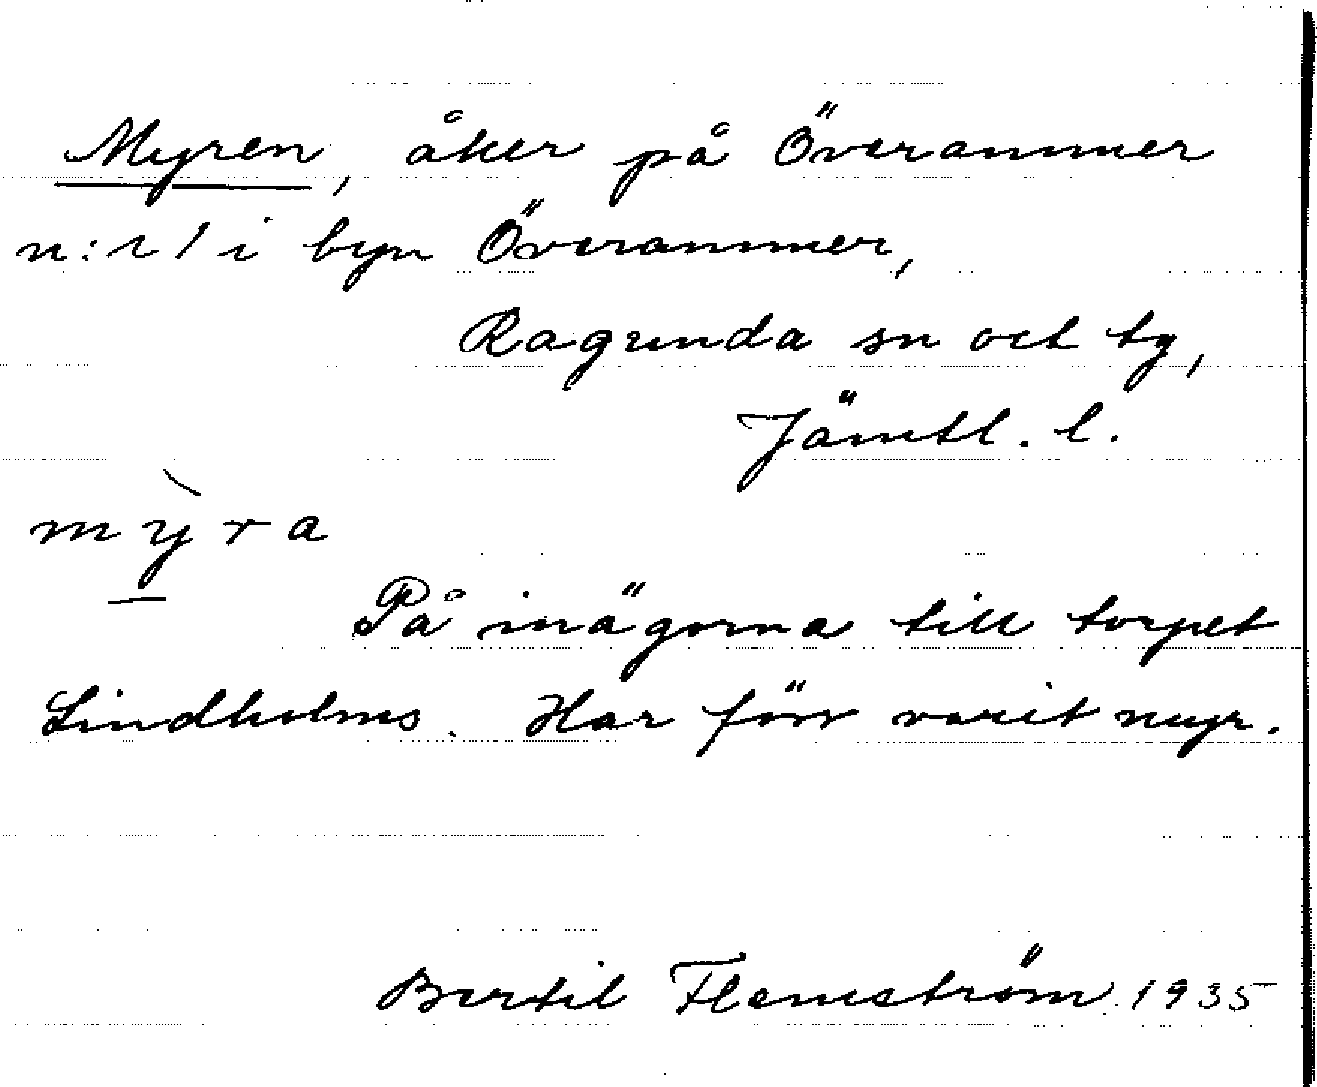 Myren, åker på Överammer
n:r 1 i byn Överammer,
Ragunda sn och tg,
Jämtl. l.
mỳra
På inägorna till torpet
Lindholms. Har förr varit myr.
Bertil Flemström. 1935